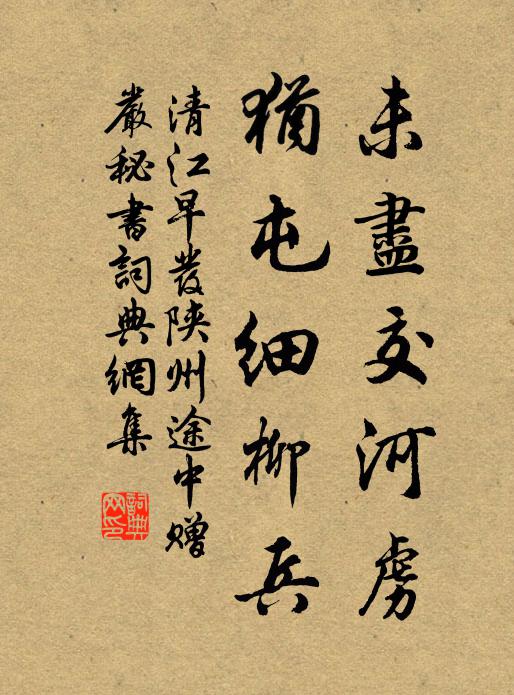 未盡交河虜
猶屯細柳兵
清江早發陝州途中贈
嚴秘書詞典網集
詞典网印